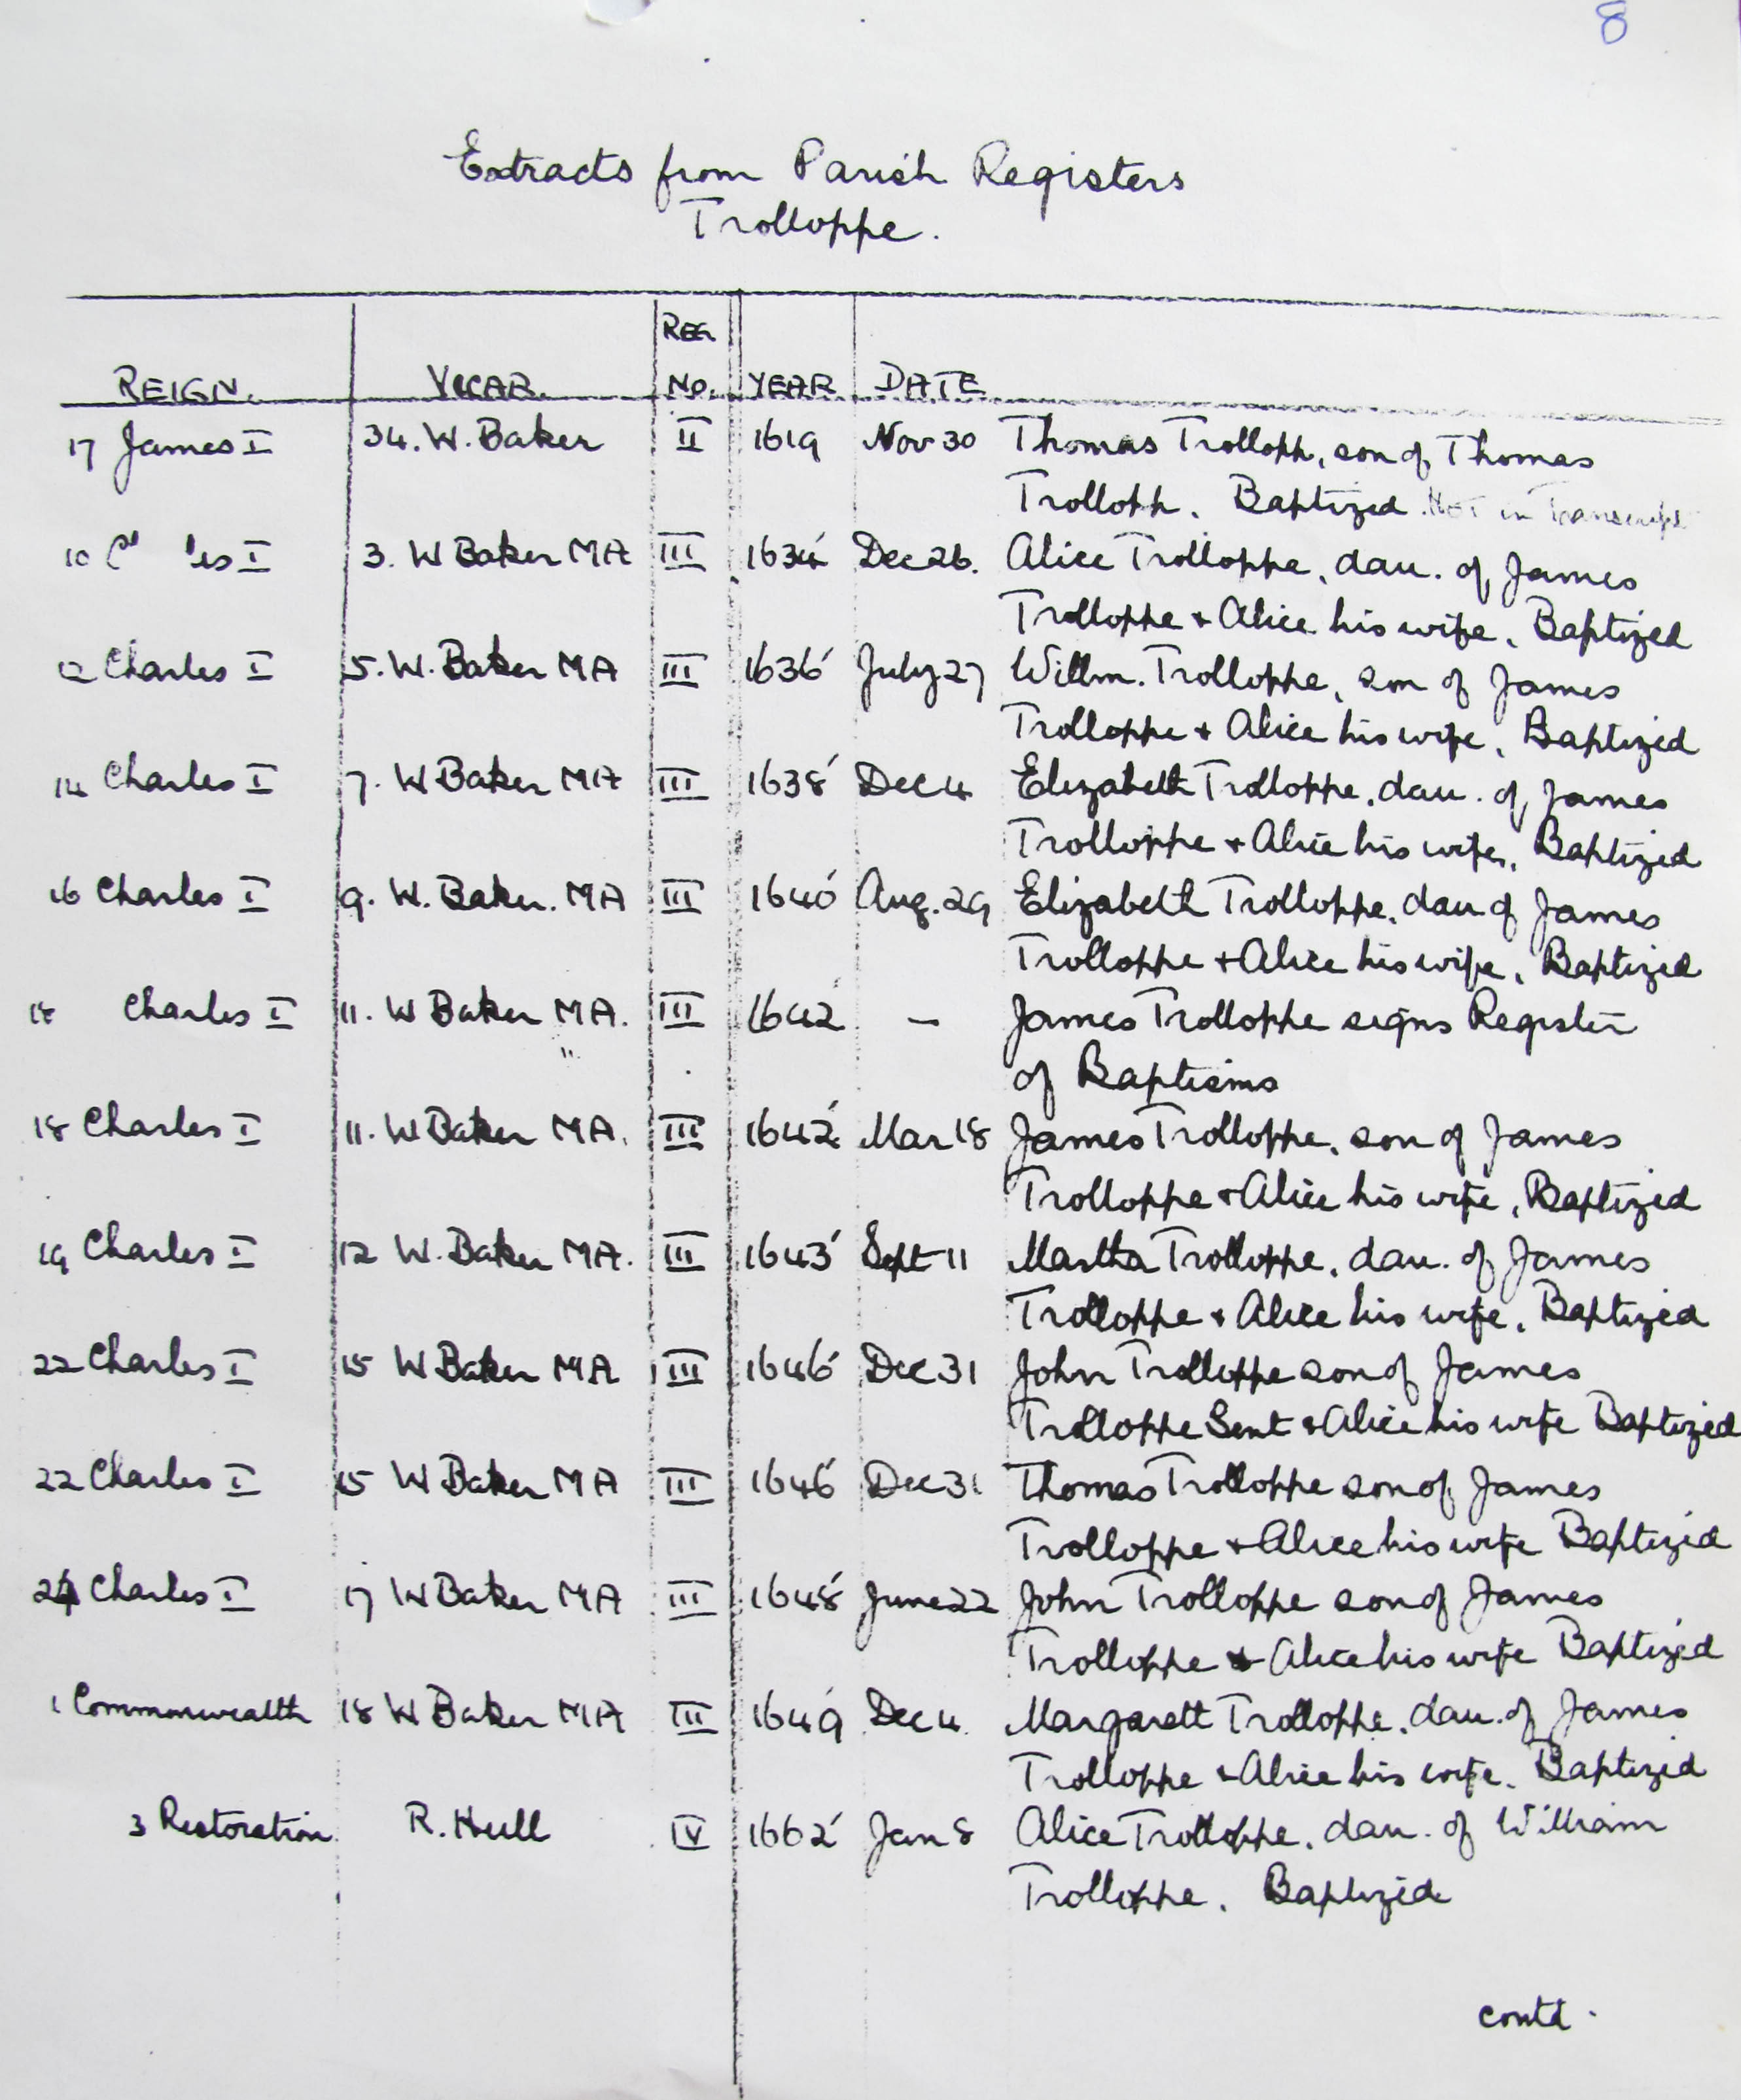 8
Extracts from Parish Registers
Trolloppe.
REG
REIGN. VICAR. No. YEAR DATE
17 James I 34. W. Baker II 1619 Nov 30 Thomas Trollopp, son of Thomas
Trollopp. Baptized. Not in Transcript
10 C les I 3. W Baker MA III 1634 Dec 26. Alice Trolloppe, dau. of James
Trolloppe + Alice his wife, Baptized
12 Charles I 5. W. Baker MA III 1636 July 27 Willm. Trolloppe, son of James
Trolloppe + Alice his wife, Baptized
14 Charles I 7. W Baker MA III 1638 Dec 4 Elizabeth Trolloppe, dau. of James
Trolloppe + Alice his wife, Baptized
16 Charles I 9. W. Baker. MA III 1640 Aug. 29 Elizabeth Trolloppe, dau of James
Trolloppe + Alice his wife, Baptized
18 Charles I 11. W Baker MA. III 1642 — James Trolloppe signs Register
of Baptisms
18 Charles I 11. W Baker MA. III 1642 Mar 18 James Trolloppe, son of James
Trolloppe + Alice his wife, Baptized
19 Charles I 12 W. Baker MA. III 1643 Sept 11 Martha Trolloppe, dau. of James
Trolloppe + Alice his wife, Baptized
22 Charles I 15 W Baker MA III 1646 Dec 31 John Trolloppe son of James
Trolloppe Sent + Alice his wife Baptized
22 Charles I 15 W Baker MA III 1646 Dec 31 Thomas Trolloppe son of James
Trolloppe + Alice his wife Baptized
24 Charles I 17 W Baker MA III 1648 June 22 John Trolloppe son of James
Trolloppe + Alice his wife Baptized
1 Commonwealth 18 W Baker MA III 1649 Dec 4. Margarett Trolloppe, dau. of James
Trolloppe + Alice his wife. Baptized
3 Restoration. R. Hull IV 1662 Jan 8 Alice Trolloppe, dau. of William
Trolloppe. Baptized
contd.